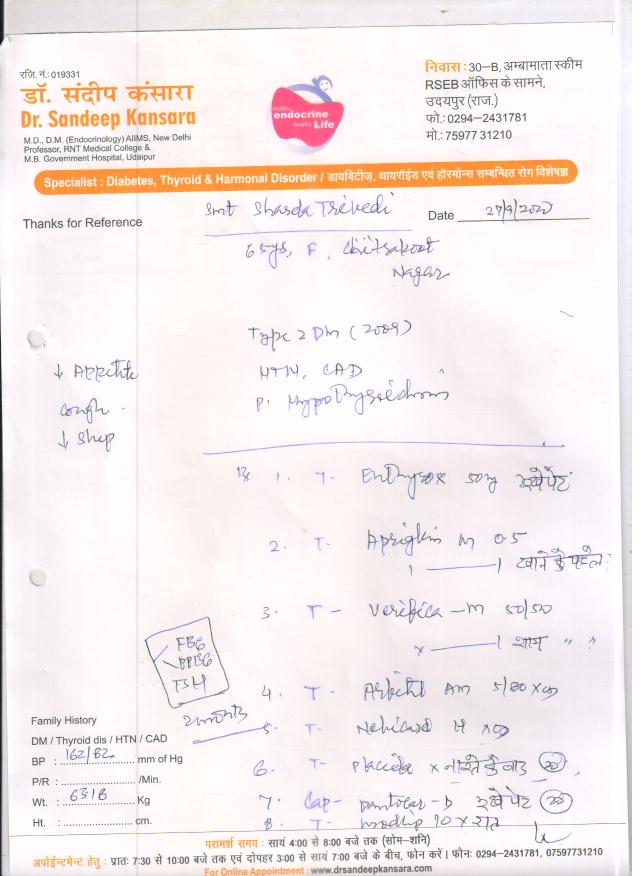 रजि. नं.: 019331
डॉ. संदीप कंसारा
Dr. Sandeep Kansara
M.D., D.M. (Endocrinology) AIIMS, New Delhi
Professor, RNT Medical College &
M.B. Government Hospital, Udaipur
healthy
endocrine
healthy Life
निवास : 30-B, अम्बामाता स्कीम
RSEB ऑफिस के सामने,
उदयपुर (राज.)
फो.: 0294-2431781
मो.: 75977 31210
Specialist : Diabetes, Thyroid & Harmonal Disorder / डायबिटीज, थायरॉइड एवं हॉरमोन्स सम्बन्धित रोग विशेषज्ञ
Thanks for Reference
Smt Sharda Trivedi
Date
65ys, F, Chitrakoot
Nagar
Type 2 DM (2009)
HTN, CAD
P. Hypothyroidism
↓ Appetite
cough
↓ Sleep
Rx 1. T. 50
2. T- M 0.5
1 ——— 1 खाने के पहले
3. T - Verifica - M 50/500
x ——— 1 शाम " "
FBG
PPBG
TSH
2 months
4. T- AM
5. T- H
6. T- Placida x नाश्ते के बाद
7. Cap- Pantocar-D
8. T- 10 x रात
Family History
DM / Thyroid dis / HTN / CAD
BP : 162/82 mm of Hg
P/R : /Min.
Wt. : Kg
Ht. : cm.
परामर्श समय : सायं 4:00 से 8:00 बजे तक (सोम-शनि)
अपोईन्टमेन्ट हेतु : प्रातः 7:30 से 10:00 बजे तक एवं दोपहर 3:00 से सायं 7:00 बजे के बीच, फोन करें। फोनः 0294-2431781, 07597731210
For Online Appointment : www.drsandeepkansara.com